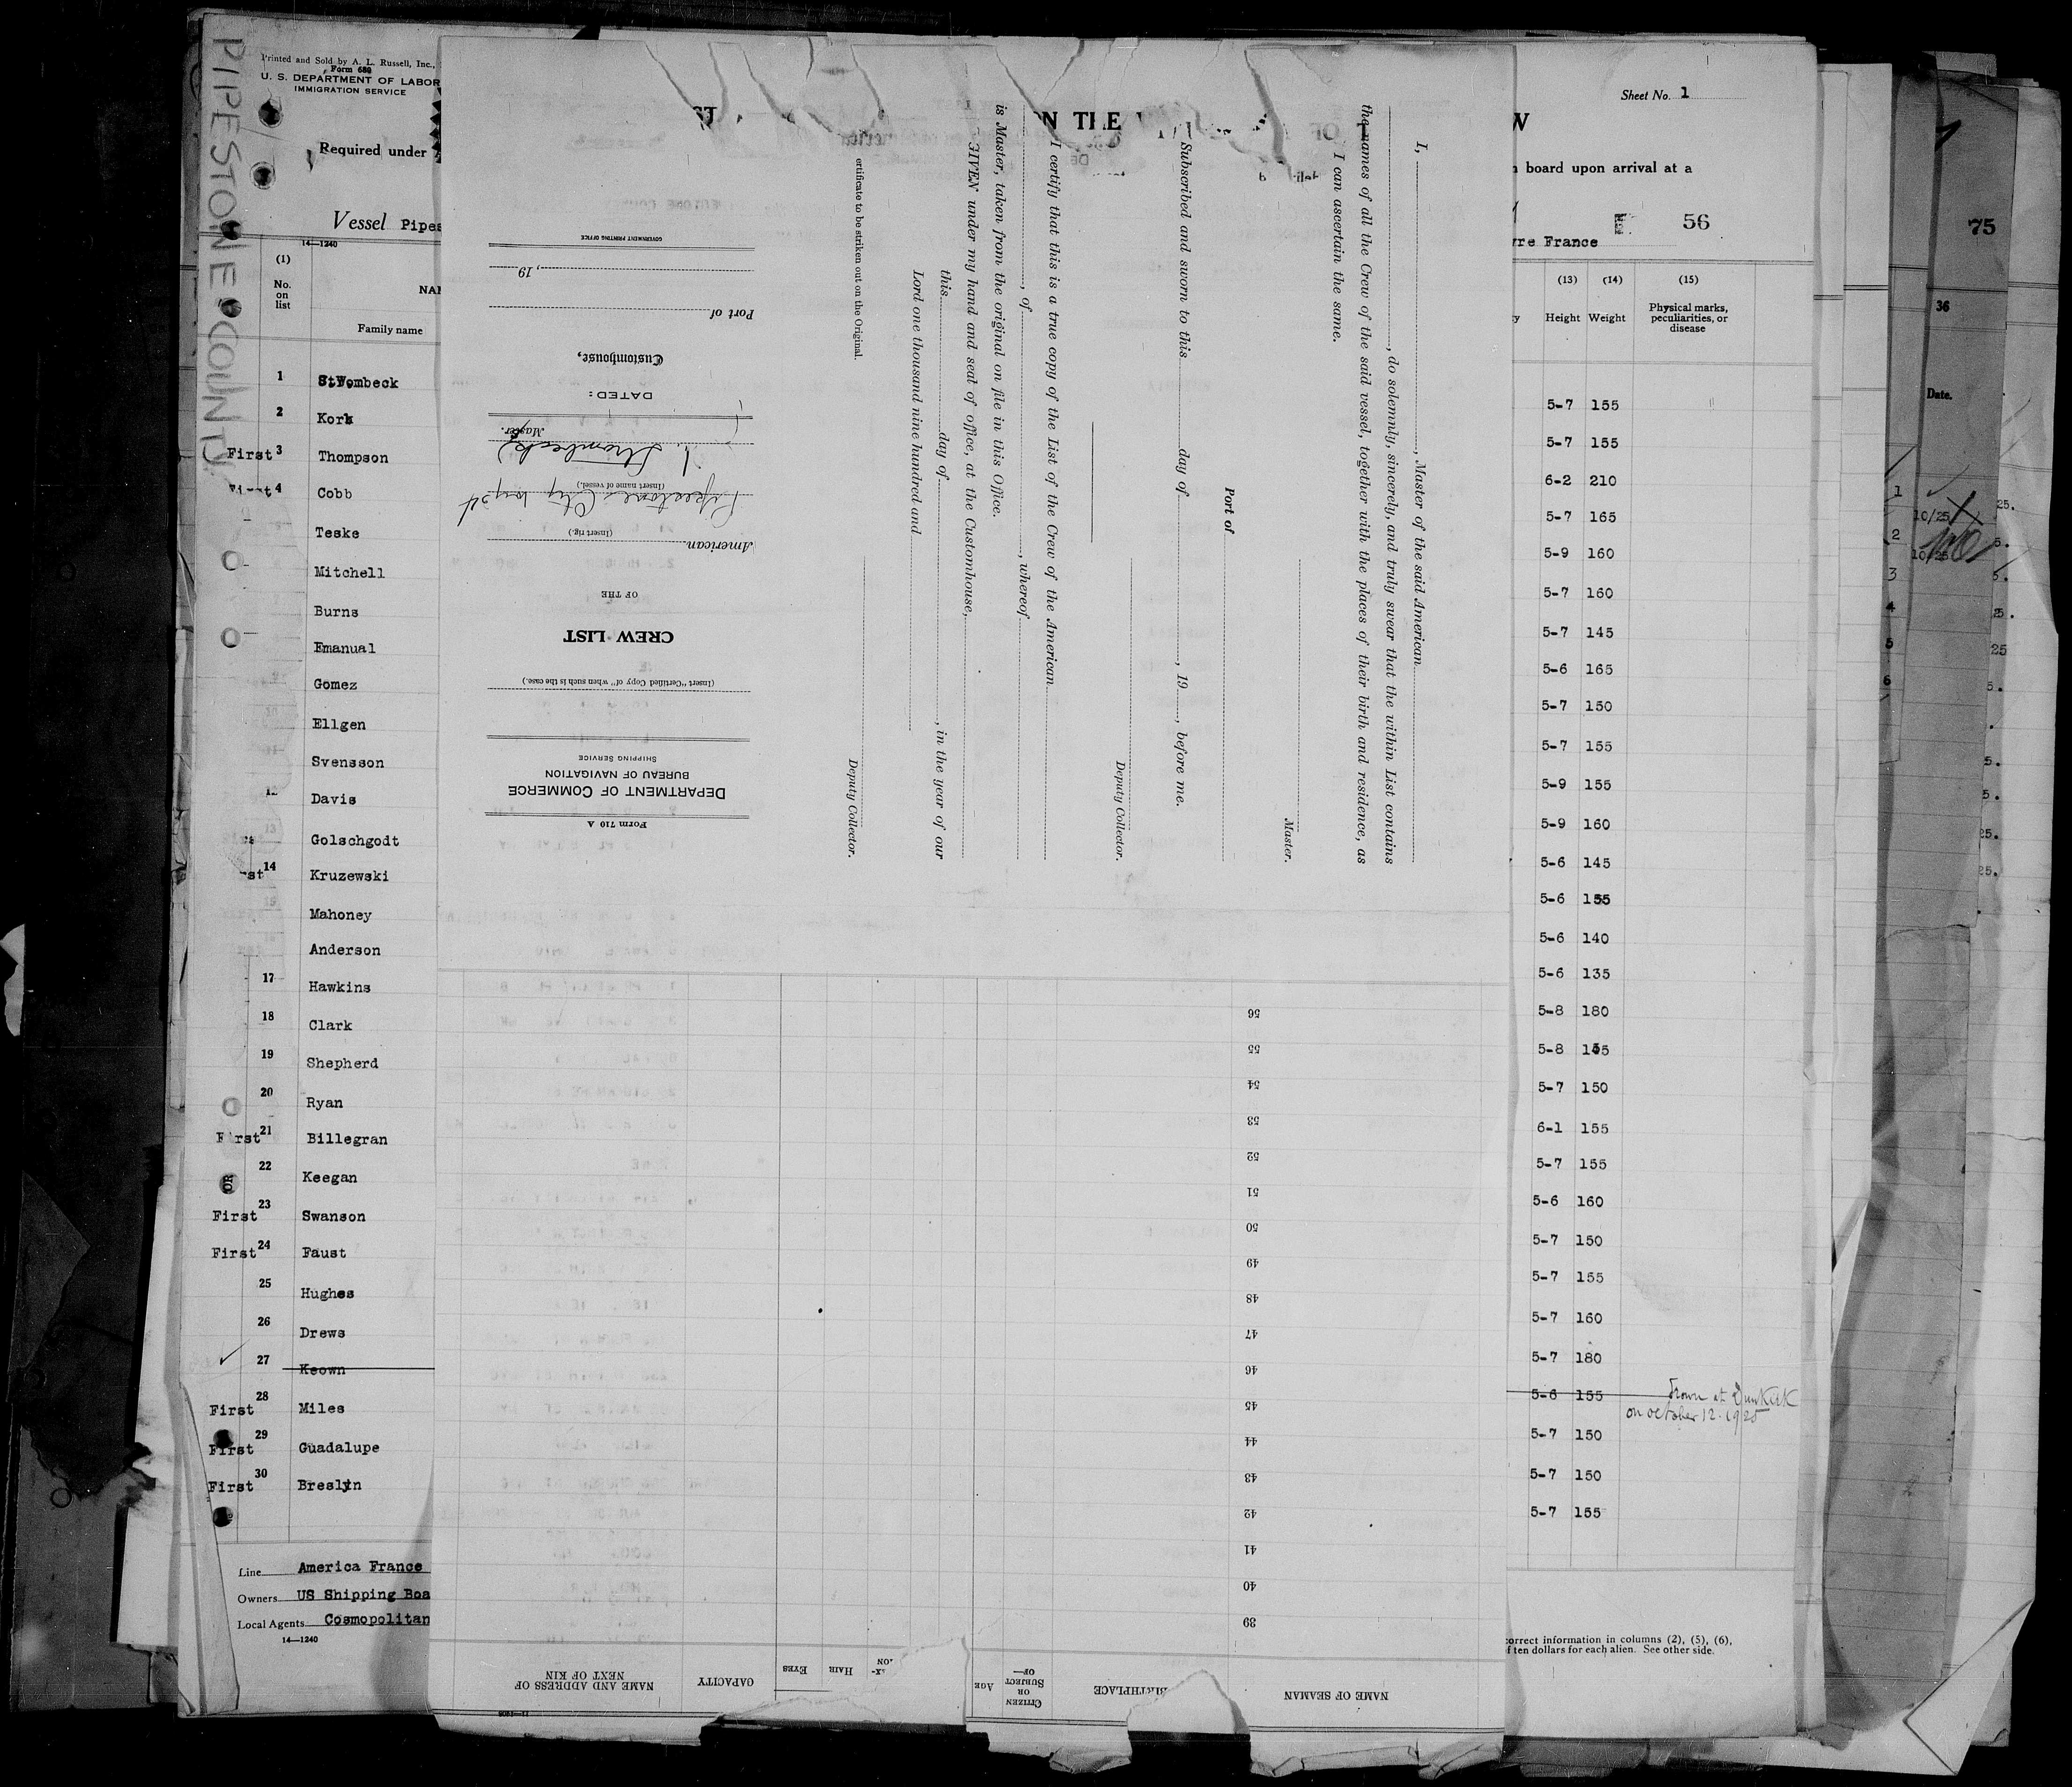 PIPESTONE COUNTY
Printed and Sold by A. L. Russell, Inc.,
Form 689
U. S. DEPARTMENT OF LABOR
IMMIGRATION SERVICE
Required under
Vessel Pipes
14—1240
Sheet No. 1
W
board upon arrival at a
56
vre France
(1)
No.
on
list
NA
Family name
(13) (14) (15)
Height Weight Physical marks,
peculiarities, or
disease
1 St.Vombeck 5-7 155
2 Kork 5-7 155
First 3 Thompson 6-2 210
First 4 Cobb 5-7 165
Teske 5-9 160
Mitchell 5-7 160
Burns 5-7 145
Emanual 5-6 165
Gomez 5-7 150
Ellgen 5-7 155
Svensson 5-9 155
Davis 5-9 160
Golschgodt 5-6 145
st 14 Kruzewski 5-6 155
Mahoney 5-6 140
Anderson 5-6 135
17 Hawkins 5-8 180
18 Clark 5-8
19 Shepherd 5-7 150
20 Ryan 6-1 155
First 21 Billegran 5-7 155
22 Keegan 5-6 160
First 23 Swanson 5-7 150
First 24 Faust 5-7 155
25 Hughes 5-7 160
26 Drews 5-7 180
27 Keown 5-6 155 at Dunkirk
on october 12. 1925
First 28 Miles 5-7 150
First 29 Guadalupe 5-7 150
First 30 Breslyn 5-7 155
Line America France
Owners US Shipping Boa
Local Agents Cosmopolitan
14—1240
correct information in columns (2), (5), (6),
of ten dollars for each alien. See other side.
I, , Master of the said American
, do solemnly, sincerely, and truly swear that the within List contains
the names of all the Crew of the said vessel, together with the places of their birth and residence, as
I can ascertain the same.
Master.
Port of
Subscribed and sworn to this day of , 19 , before me.
Deputy Collector.
I certify that this is a true copy of the List of the Crew of the American
, of , whereof
is Master, taken from the original on file in this Office.
GIVEN under my hand and seal of office, at the Customhouse,
this day of , in the year of our
Lord one thousand nine hundred and
Deputy Collector.
ertificate to be striken out on the Original.
Form 710 A
DEPARTMENT OF COMMERCE
BUREAU OF NAVIGATION
SHIPPING SERVICE
(Insert "Certified Copy of" when such is the case.)
CREW LIST
OF THE
American
(Insert rig.)
(Insert name of vessel.)
Master.
DATED:
Customhouse,
Port of
, 19
GOVERNMENT PRINTING OFFICE
NAME OF SEAMAN
BIRTHPLACE
CITIZEN
OR
SUBJECT
OF—
AGE
HAIR
EYES
CAPACITY
NAME AND ADDRESS OF
NEXT OF KIN
39
40
41
42
43
44
45
46
47
48
49
50
51
52
53
54
55
56
75
36
Date.
1
10/25
2
10/25
3
4
5
6